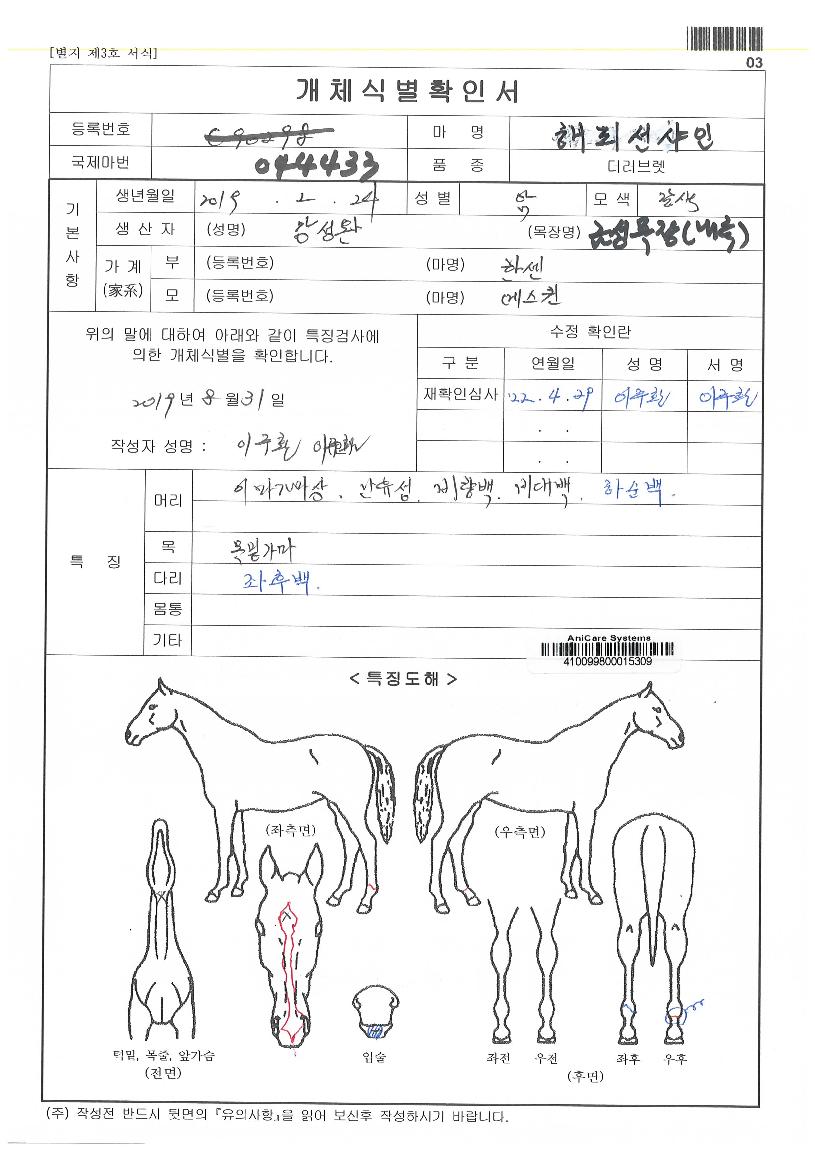 [별지 제3호 서식]
03
개체식별확인서
등록번호 C90298 마 명 해피선샤인
국제마번 044433 품 종 더러브렛
기본사항
생년월일 2019 . 2 . 24 성 별 암 모 색 갈색
생 산 자 (성명) 양성완 (목장명) 금성목장(내륙)
가 계 (家系) 부 (등록번호) (마명) 한센
모 (등록번호) (마명) 에스퀸
위의 말에 대하여 아래와 같이 특징검사에
의한 개체식별을 확인합니다.
2019년 8월 31일
작성자 성명 :
수정 확인란
구 분 연월일 성 명 서 명
재확인심사 '22. 4. 29
. .
. .
특 징
머리 이마가마상. 비량백. 비대백. 하순백.
목 목밑가마
다리 좌후백.
몸통
기타
AniCare Systems
410099800015309
< 특징도해 >
(좌측면) (우측면)
턱밑, 목줄, 앞가슴
(전면)
입술
좌전 우전 좌후 우후
(후면)
(주) 작성전 반드시 뒷면의 『유의사항』을 읽어 보신후 작성하시기 바랍니다.